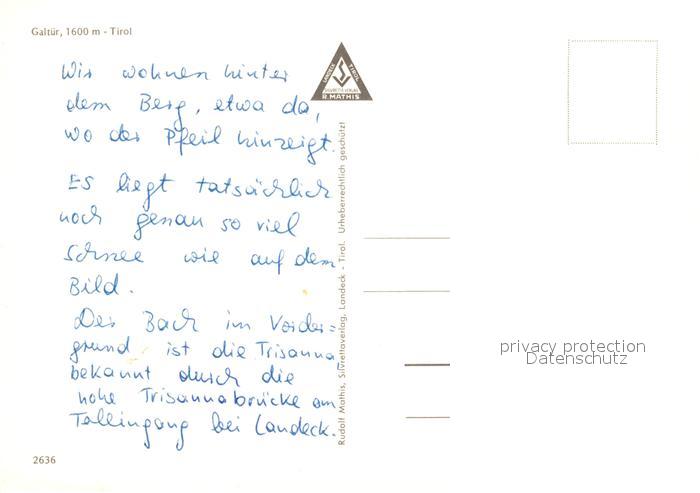 Galtür, 1600 m - Tirol
Wir wohnen hinter
dem Berg, etwa da,
wo der Pfeil hinzeigt.
Es liegt tatsächlich
noch genau so viel
Schnee wie auf dem
Bild.
Der Bach im Vorder=
grund ist die Trisanna,
bekannt durch die
hohe Trisannabrücke am
Talleingang bei Landeck.
2636
LANDECK TIROL
SILVRETTA VERLAG
R. MATHIS
Rudolf Mathis, Silvrettaverlag, Landeck - Tirol. Urheberrechtlich geschützt!
privacy protection
Datenschutz